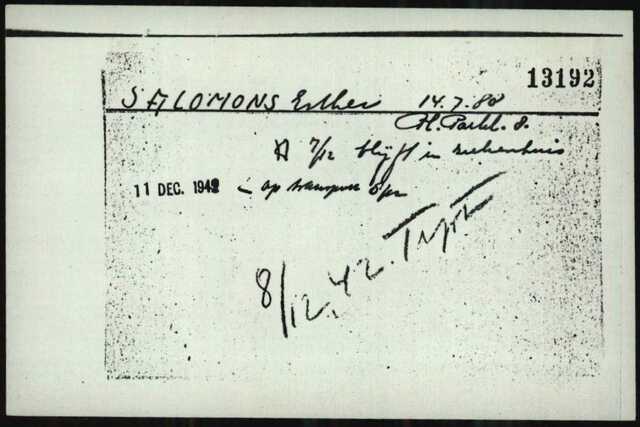 13192
SALOMONS Esther 14.7.88
H. Parkl. 8.
7/12 blijft in ziekenhuis
11 DEC. 1942 op transport 8/12
8/12.42.